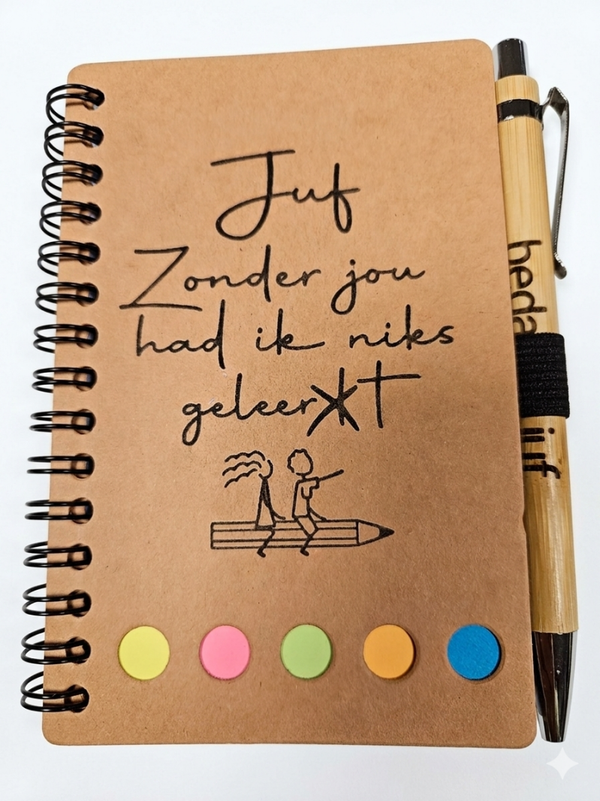 Juf
Zonder jou
had ik niks
geleerXT
heda
juf